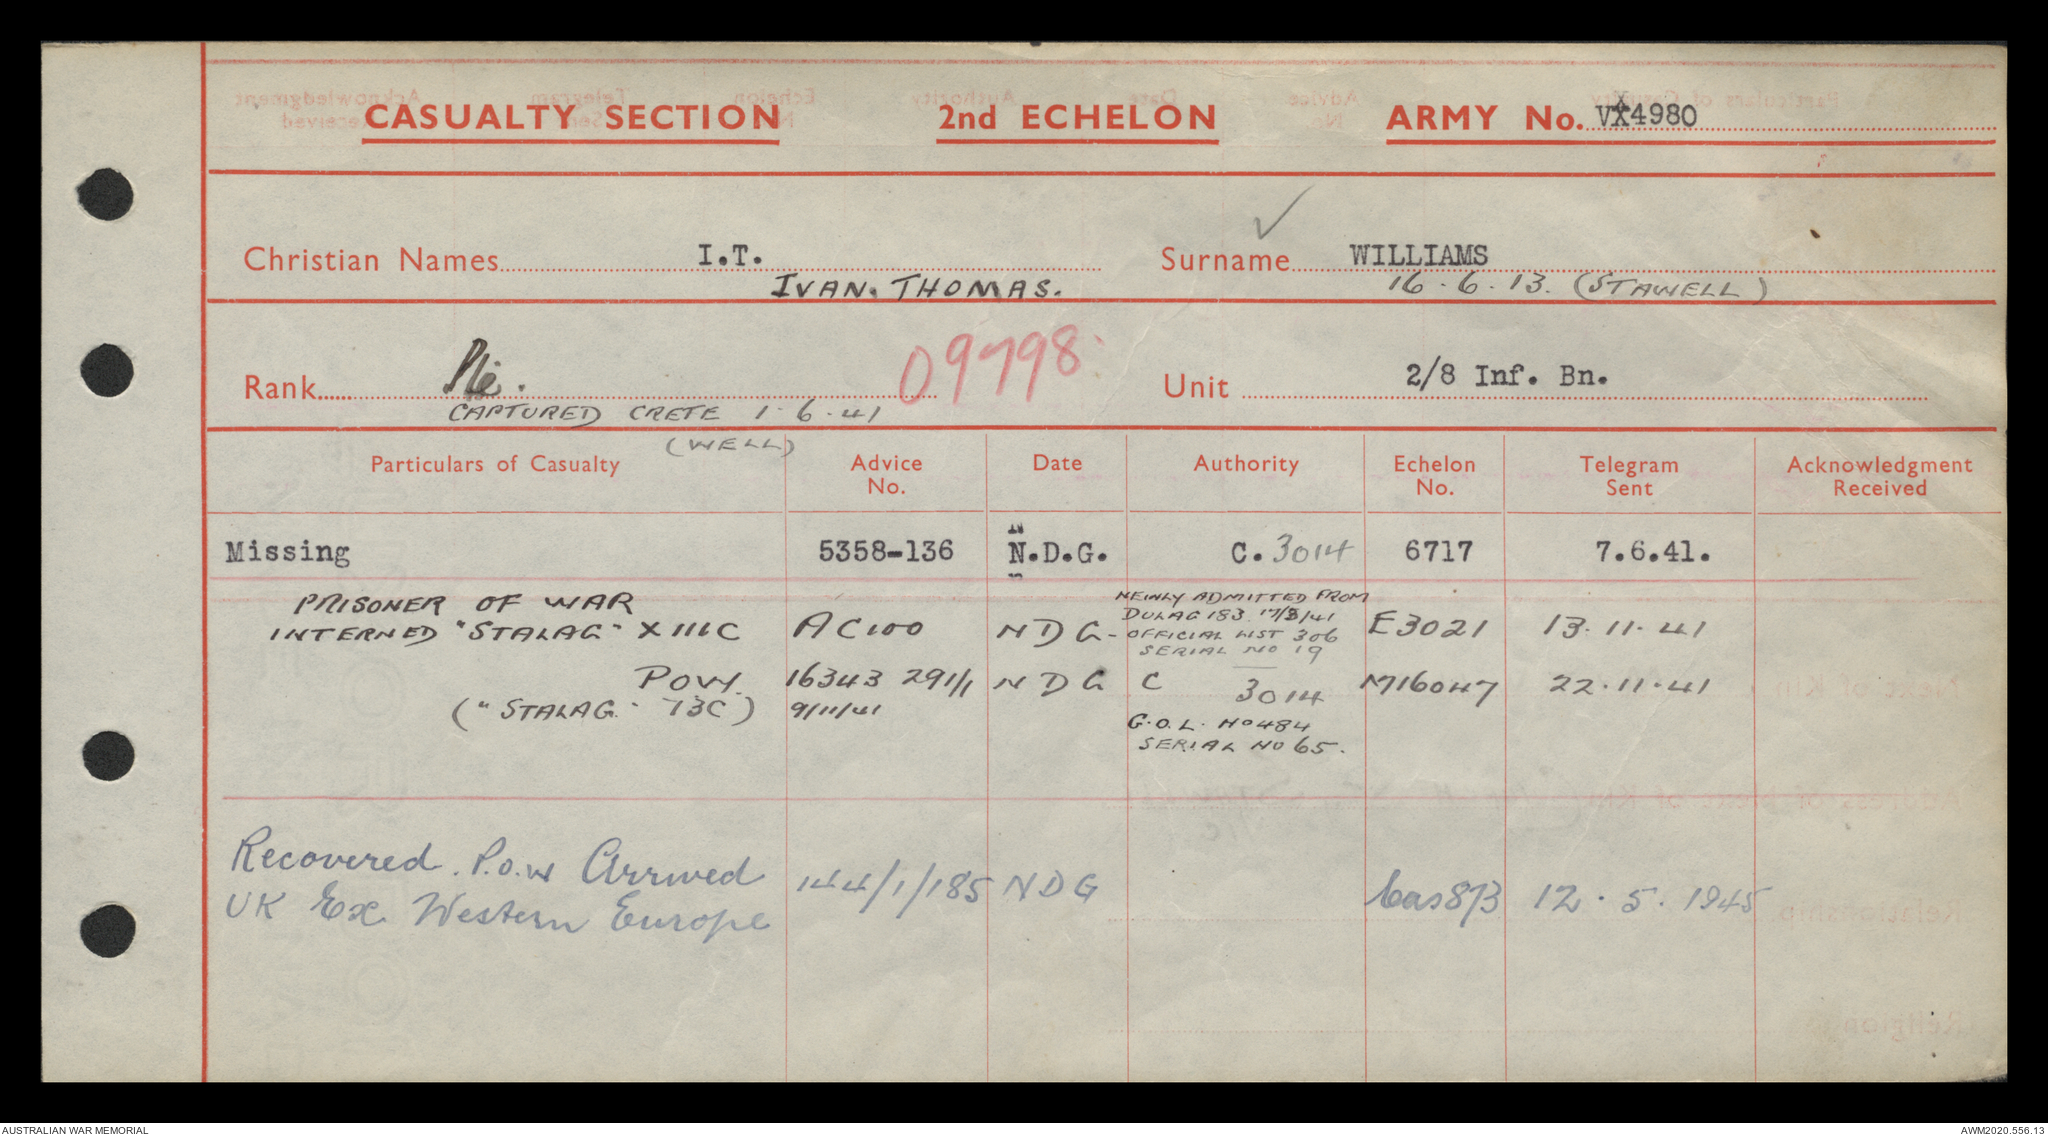 CASUALTY SECTION 2nd ECHELON ARMY No. VX4980
Christian Names I.T. Surname WILLIAMS
IVAN. THOMAS. 16.6.13. (STAWELL)
Rank Pte. 09798 Unit 2/8 Inf. Bn.
CAPTURED CRETE 1.6.41
(WELL)
Particulars of Casualty Advice No. Date Authority Echelon No. Telegram Sent Acknowledgment Received
Missing 5358-136 N.D.G. C. 3014 6717 7.6.41.
PRISONER OF WAR NEWLY ADMITTED FROM
INTERNED "STALAG" XIIIC AC100 NDG- DULAG 183 17/8/41 E3021 13.11.41
OFFICIAL LIST 306
SERIAL NO 19
POW. 16343 291/1 NDG C 3014 M16047 22.11.41
("STALAG" 13C) 9/11/41
G.O.L. NO 484
SERIAL NO 65.
Recovered. P.o.w Arrived 144/1/185 NDG Cas873 12.5.1945
UK Ex Western Europe
AUSTRALIAN WAR MEMORIAL AWM2020.556.13